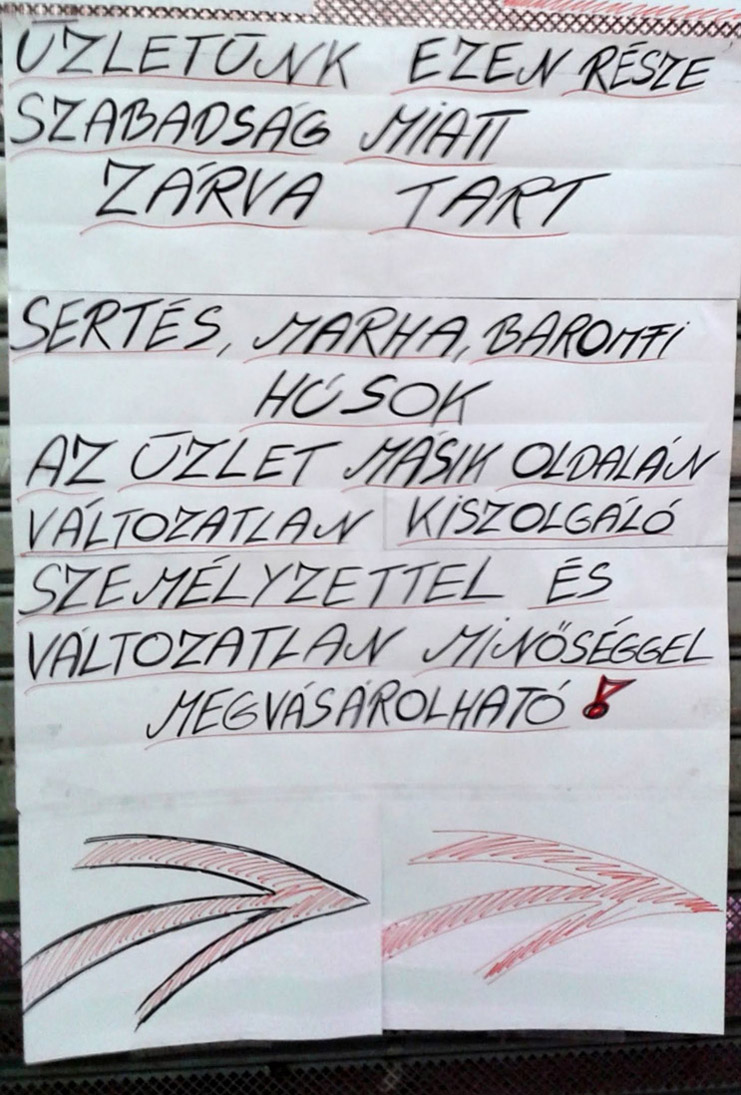 ÜZLETÜNK EZEN RÉSZE
SZABADSÁG MIATT
ZÁRVA TART
SERTÉS, MARHA, BAROMFI
HÚSOK
AZ ÜZLET MÁSIK OLDALÁN
VÁLTOZATLAN KISZOLGÁLÓ
SZEMÉLYZETTEL ÉS
VÁLTOZATLAN MINŐSÉGGEL
MEGVÁSÁROLHATÓ!